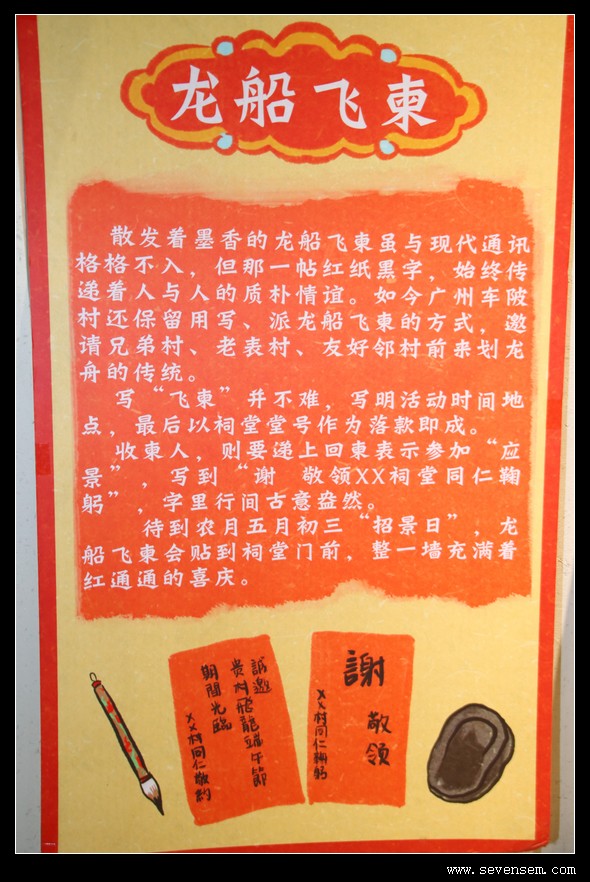 龙船飞柬
散发着墨香的龙船飞柬虽与现代通讯
格格不入，但那一帖红纸黑字，始终传
递着人与人的质朴情谊。如今广州车陂
村还保留用写、派龙船飞柬的方式，邀
请兄弟村、老表村、友好邻村前来划龙
舟的传统。
写“飞柬”并不难，写明活动时间地
点，最后以祠堂堂号作为落款即成。
收柬人，则要递上回柬表示参加“应
景”，写到“谢　敬领XX祠堂同仁鞠
躬”，字里行间古意盎然。
待到农月五月初三“招景日”，龙
船飞柬会贴到祠堂门前，整一墙充满着
红通通的喜庆。
誠邀
贵村飛龍端午節
期間光臨
XX村同仁敬約
謝
敬领
XX村同仁鞠躬
www.sevensem.com